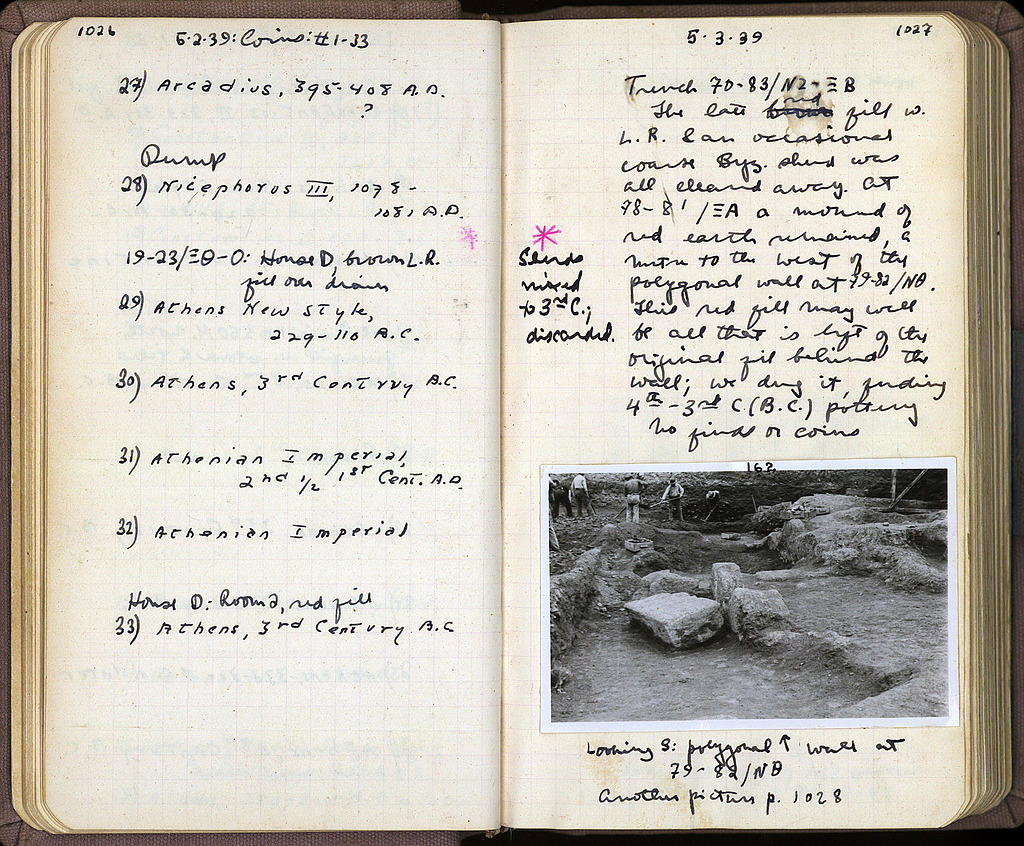 1026
5·2·39: Coins: #1-33
27) Arcadius, 395-408 A.D.
?
Dump
28) Nicephorus III, 1078-
1081 A.D.
19-23/ΞΘ-Ο: House D, brown L.R.
fill over drains
29) Athens New Style,
229-110 B.C.
30) Athens, 3rd Century B.C.
31) Athenian Imperial,
2nd 1/2 1st Cent. A.D.
32) Athenian Imperial
House D: Room 2, red fill
33) Athens, 3rd Century B.C
1027
5·3·39
Trench 70-83/ΝΖ-ΞΒ
The late red fill w.
L.R. & an occasional
coarse Byz. sherd was
all cleared away. At
78-81/ΞΑ a mound of
red earth remained, a
metre to the west of the
polygonal wall at 79-82/ΝΘ.
This red fill may well
be all that is left of the
original fill behind the
wall; we dug it, finding
4th-3rd C. (B.C.) pottery
No finds or coins
Sherds
mixed
to 3rd C.;
discarded.
162
Looking S: polygonal ↑ wall at
79-82/ΝΘ
Another picture p. 1028